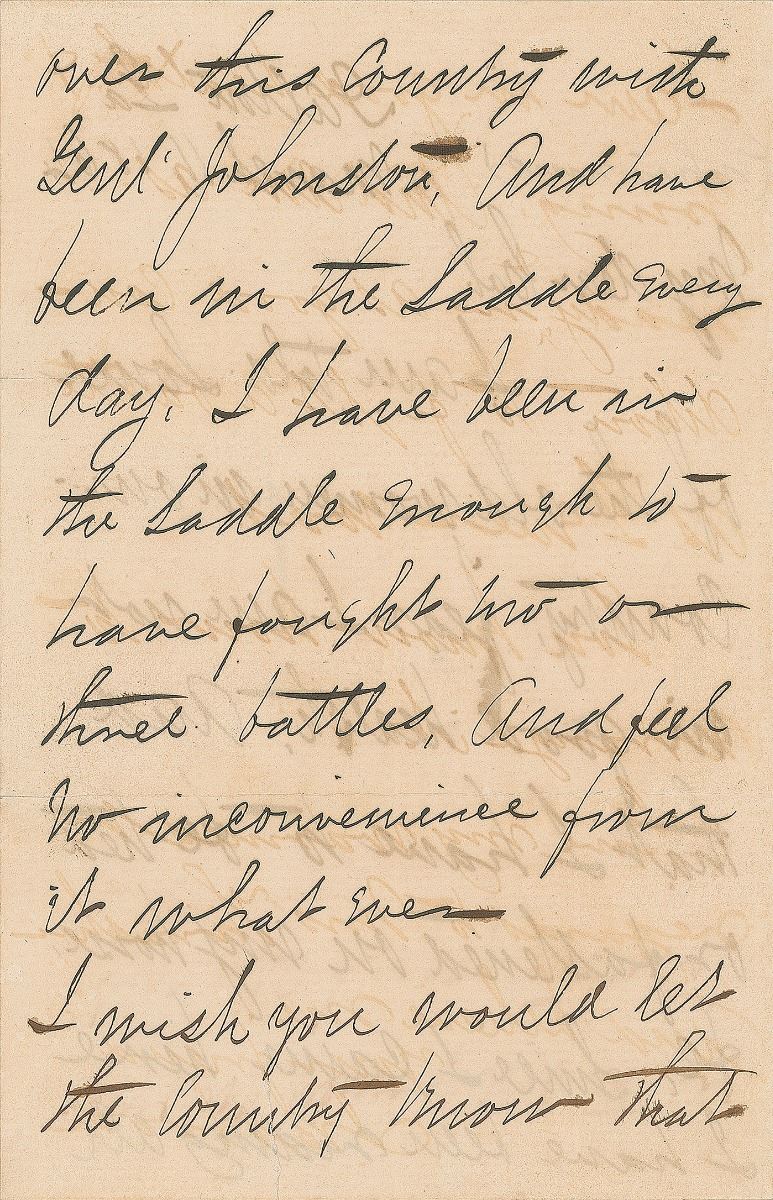 over this Country with
Genl' Johnston, And have
been in the Saddle Every
day, I have been in
the Saddle Enough to
have fought two or
three battles, And feel
No inconvenience from
it what ever
I wish you would let
the Country Know that